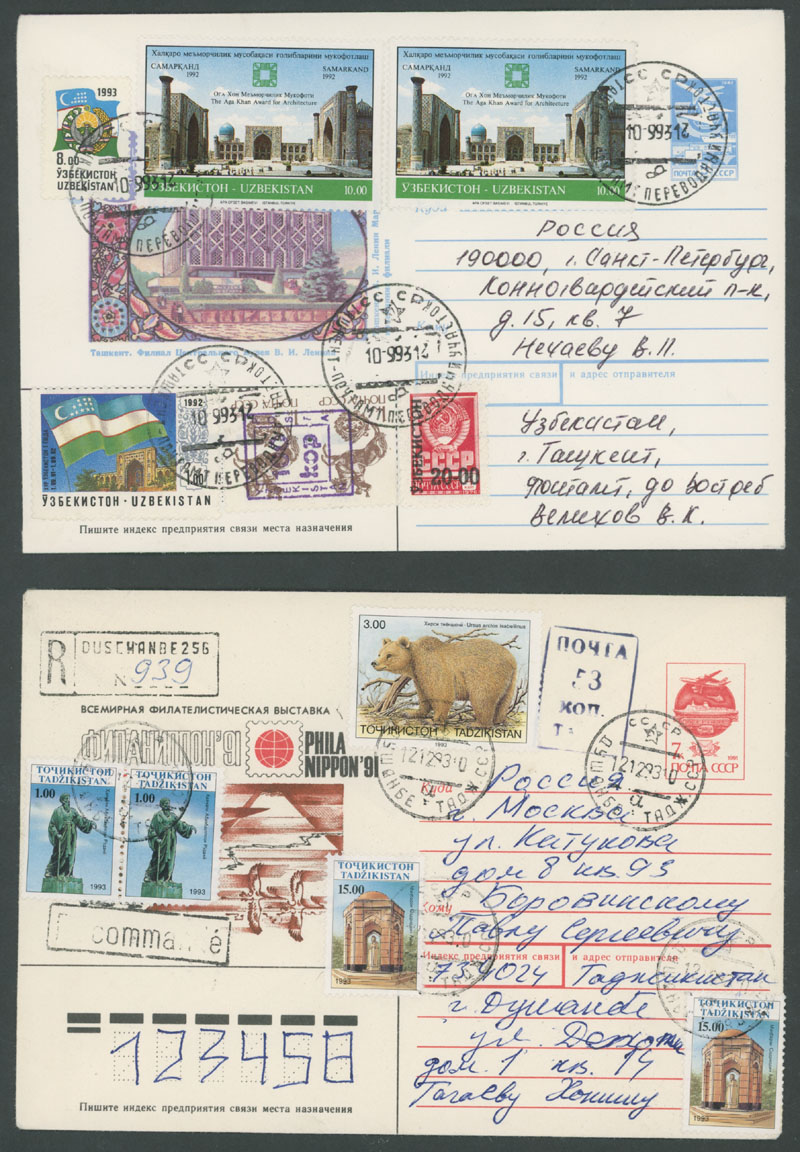 Халқаро меъморчилик мусобақаси ғолибларини мукофотлаш
САМАРҚАНД SAMARKAND
1992 1992
Оға Хон Меъморчилик Мукофоти
The Aga Khan Award for Architecture
ЎЗБЕКИСТОН - UZBEKISTAN 10.00
Халқаро меъморчилик мусобақаси ғолибларини мукофотлаш
САМАРҚАНД SAMARKAND
1992 1992
Оға Хон Меъморчилик Мукофоти
The Aga Khan Award for Architecture
ЎЗБЕКИСТОН - UZBEKISTAN 10.00
1993
8.00
ЎЗБЕКИСТОН
UZBEKISTAN
10-99314
10-99314
Куда
Россия
190000, г. Санкт-Петербург,
Конногвардейский п-к,
д. 15, кв. 7
Нечаеву В.П.
Ташкент. Филиал Центрального музея В. И. Ленина
10-99314
Индекс предприятия связи и адрес отправителя
1992
10-99314
ЎЗБЕКИСТОН - UZBEKISTAN
СССР
20-00
Узбекистан,
г. Ташкент,
почтамт, до востреб
Велихов В.К.
Пишите индекс предприятия связи места назначения
R DUSCHANBE256
N 939
3.00
Ursus arctos isabellinus
ТОҶИКИСТОН 1992 TADZIKISTAN
ПОЧТА
53
коп.
7
ПОЧТА СССР
ВСЕМИРНАЯ ФИЛАТЕЛИСТИЧЕСКАЯ ВЫСТАВКА
ФИЛАНИППОН'91
PHILA
NIPPON'91
12129310
12129310
ТОҶИКИСТОН
TADZIKISTAN
1.00
1993
ТОҶИКИСТОН
TADZIKISTAN
1.00
1993
Куда
Россия
г. Москва
ул. Катукова
дом 8 кв. 93
Кому
Боровинскому
Павлу Сергеевичу
ТОҶИКИСТОН
TADZIKISTAN
15.00
1993
commandé
Индекс предприятия связи и адрес отправителя
734024 Таджикистан
г. Душанбе
ул.
дом. 1 кв. 14
Тагаеву
ТОҶИКИСТОН
TADZIKISTAN
15.00
1993
123450
Пишите индекс предприятия связи места назначения